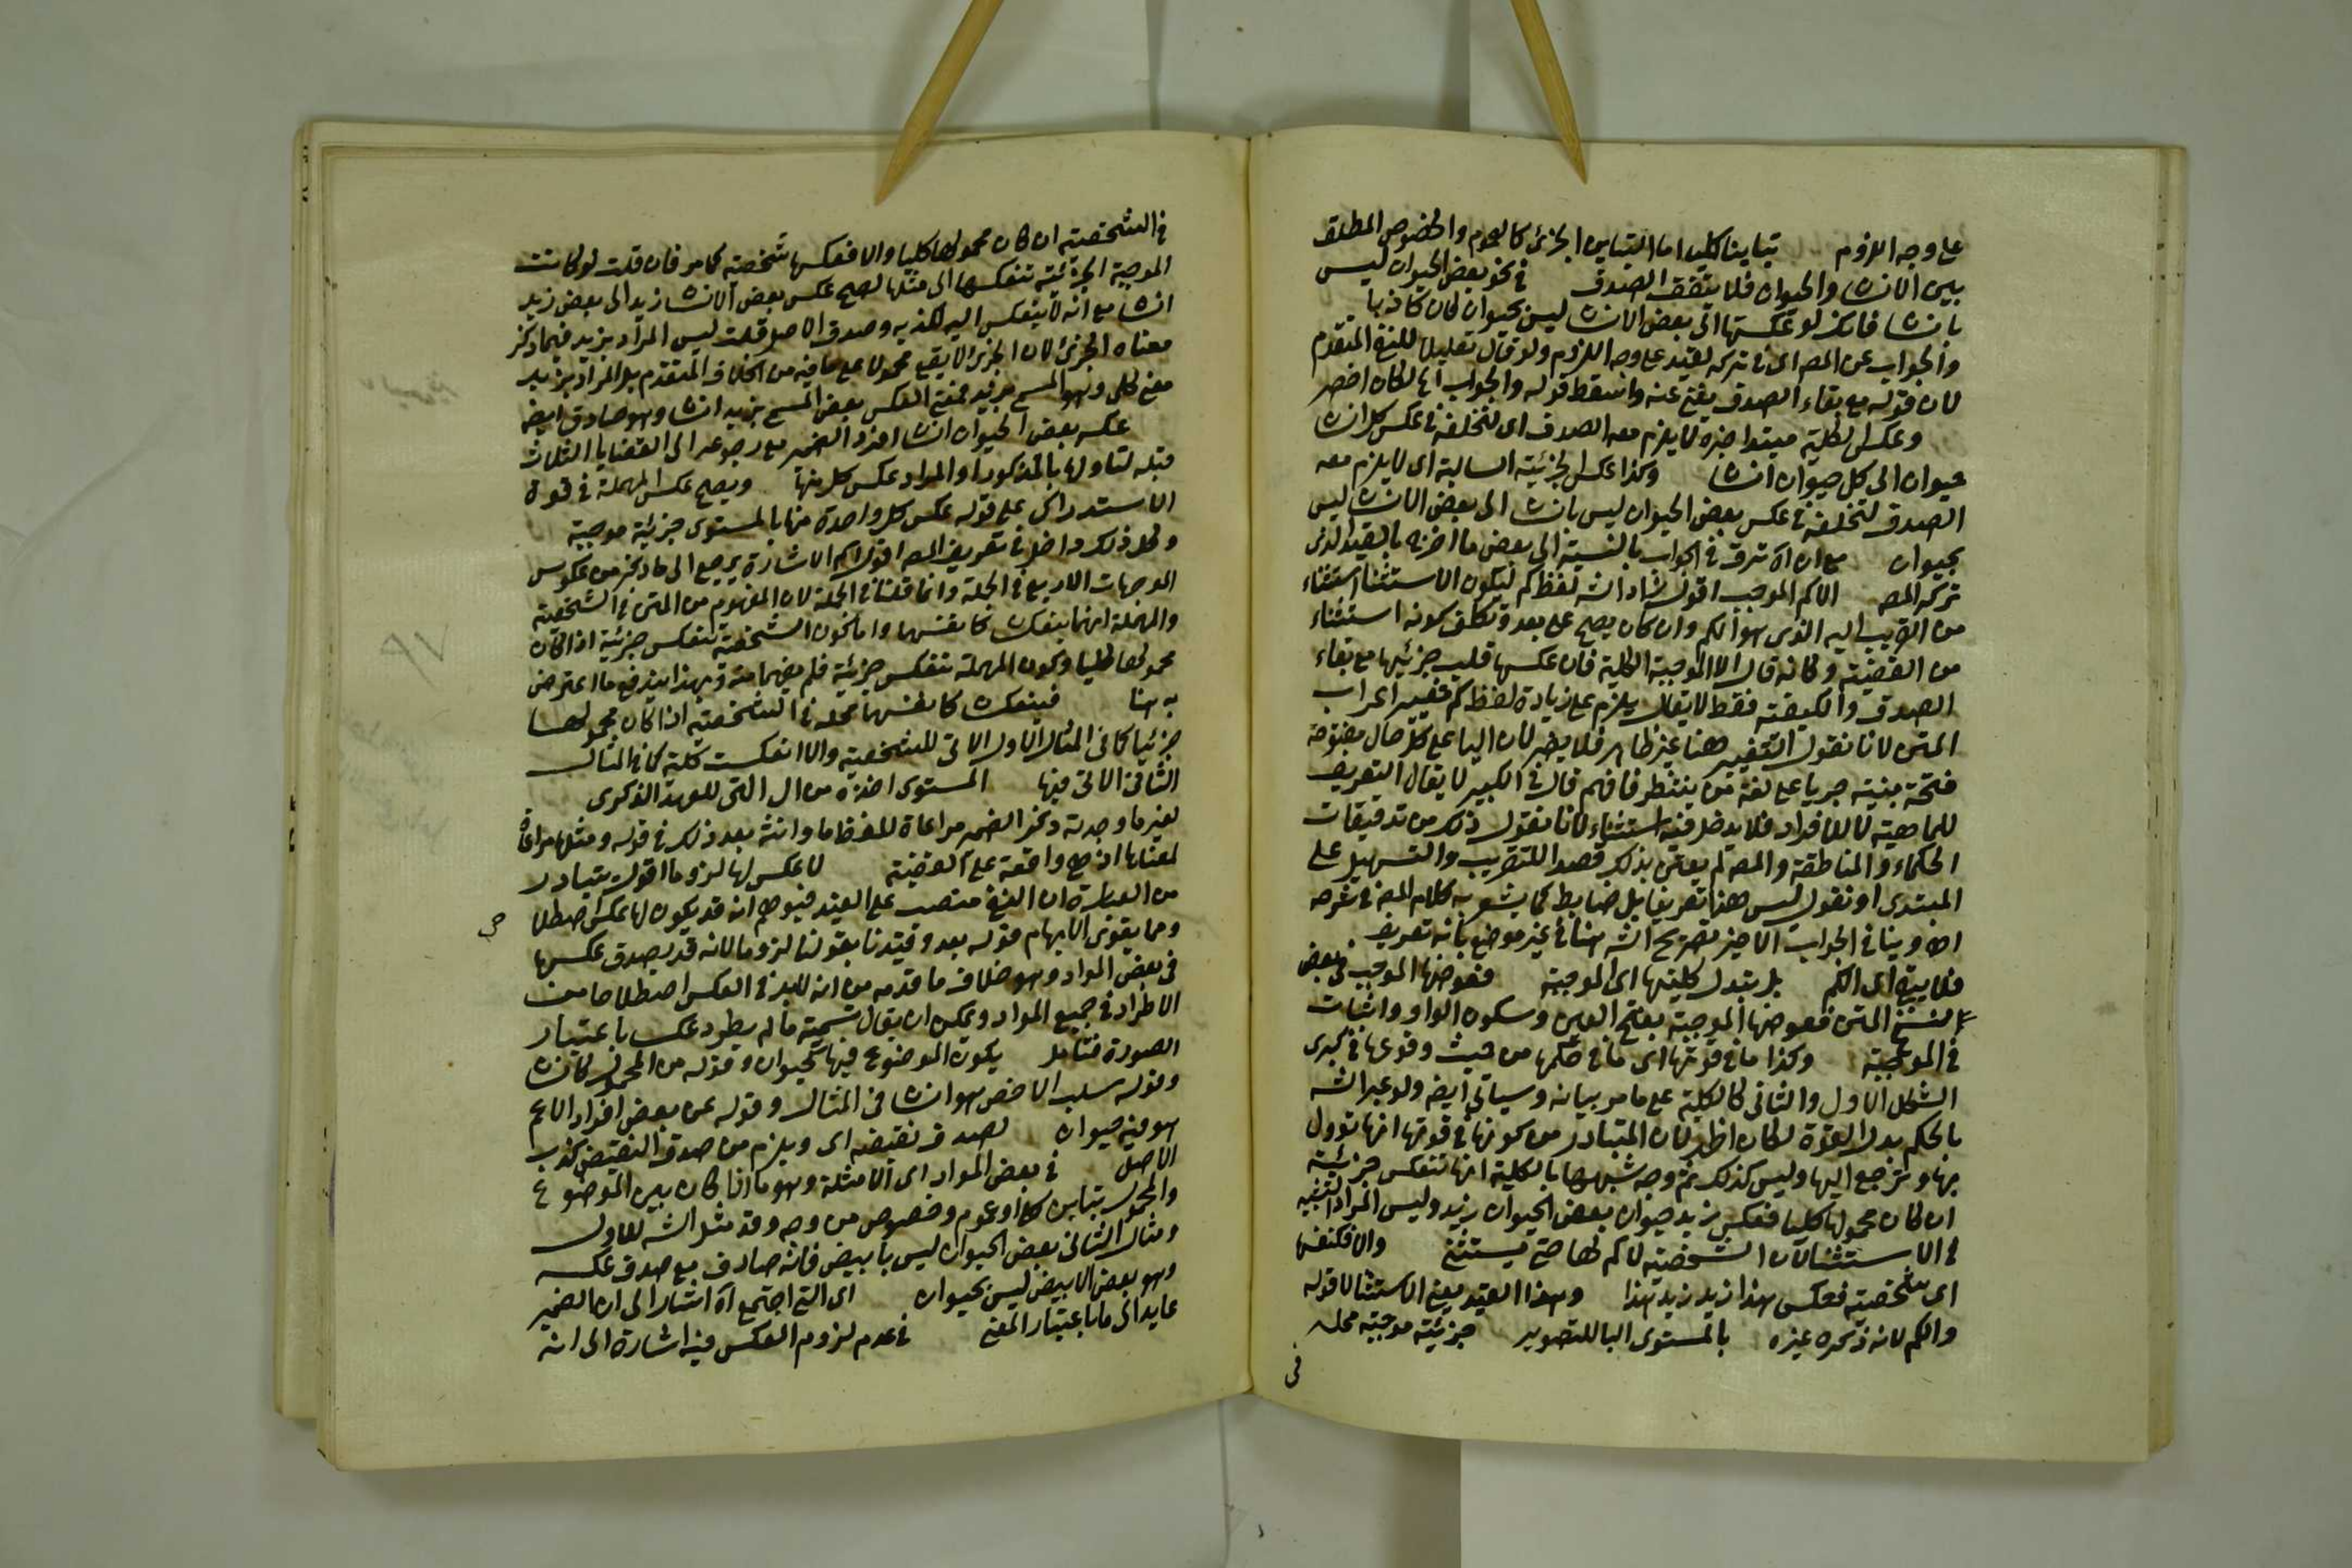 على وجه اللزوم تباينا كليا اما التباين الجزئي كالعموم والخصوص المطلق
بين الانسان والحيوان فلا يتفق الصدق في نحو بعض الحيوان ليس
بانسان فانك لو عكستها الى بعض الانسان ليس بحيوان لكان كاذبا
والجواب عن المص اى في تركه لقيد على وجه اللزوم ولو قال تعليلا للنفي المتقدم
لان قوله مع بقاء الصدق يغني عنه واسقط قوله والجواب الخ لكان اخصر
وعكس الكلية مبتدا خبره لا يلزم معه الصدق اى لتخلفه في عكس كل انسان
حيوان الى كل حيوان انسان وكذا عكس الجزئية السالبة اى لا يلزم معه
الصدق لتخلفه في عكس بعض الحيوان ليس بانسان الى بعض الانسان ليس
بحيوان مع ان الخ ترق في الجواب بالنسبة الى بعض ما اخرجه بالقيد الذى
تركه المص الا كم الموجب اقول زاد الش لفظ كم ليكون الاستثنا استثناء
من القريب اليه الذى هو الكم وان كان يصح على بعد وتكلف كونه استثناء
من القضية وكانه قال الا الموجبة الكلية فان عكسها قلب جزئيها مع بقاء
الصدق والكيفية فقط لا يقال يلزم على زيادة لفظ كم تغيير اعراب
المتن لانا نقول التغيير هنا غير ظاهر فلا يضر لان اليا على كل حال مفتوحة
فتحة بنية جريا على لغة من ينتظر فافهم قال في الكبير لا يقال التعريف
للماهية لا للافراد فلا يدخل فيه استثناء لانا نقول ذلك من تدقيقات
الحكماء والمناطقة والمص لم يعتن بذلك قصدا للتقريب والتسهيل على
المبتدى او نقول ليس هذا تعريفا بل ضابط كما يشعر به كلام المص في شرحه
اه وينافي الجواب الاخير تصريح الش هنا في غير موضع بانه تعريف
فلا يبقى اى الكم بل تبدل كليتها اى الموجبة فعوضها الموجب في بعض
نسخ المتن فعوضها الموجبة بفتح العين وسكون الواو واثبات
في الموجبة وكذا ما في قوتها اى ما في حكمها من حيث وقوعها في كبرى
الشكل الاول والثاني كالكلية على ما مر بيانه وسياتي ايضا ولو عبر الش
بالحكم بدل القوة لكان اظهر لان المتبادر من كونها في قوتها انها تؤول
بها وترجع اليها وليس كذلك ثم وجه شبهها بالكلية انها تنعكس جزئية
ان كان محمولها كليا فعكس زيد حيوان بعض الحيوان زيد وليس المراد التشبيه
في الاستثنا لان الشخصية لا كم لها حتى يستثنى والا فكنفسها
اى شخصية فعكس هذا زيد زيد هذا وهذا القيد يعني الاستثنا لا قوله
والكم لانه ذكره غيره بالمستوى البا للتصوير جزئية موجبة محله
في
في الشخصية ان كان محمولها كليا والا فعكسها شخصية كما مر فان قلت لو كانت
الموجبة الجزئية تنعكس الى مثلها لصح عكس بعض الانسان زيد الى بعض زيد
انسان مع انه لا ينعكس اليه لكذبه وصدق الاصل قلت ليس المراد بزيد فيما ذكر
معناه الجزئي لان الجزئي لا يقع محمولا على ما فيه من الخلاف المتقدم بل المراد بزيد
معنى كلى وهو المسمى بزيد فمعنى العكس بعض المسمى بزيد انسان وهو صادق ايضا
عكسه بعض الحيوان انسان افرد الضمير مع رجوعه الى القضايا الثلاث
قبله لتاولها بالمذكور او المراد عكس كل منها ويصح عكس المهملة في قوة
الاستدراك على قوله عكس كل واحدة منها بالمستوى جزئية موجبة
وكل ذلك داخل في تعريف المص اقول اسم الاشارة يرجع الى ما ذكر من عكوس
الموجبات الاربع في الجملة وانما قلنا في الجملة لان المفهوم من المتن في الشخصية
والمهملة انهما ينعكسان كانفسهما واما كون الشخصية تنعكس جزئية اذا كان
محمولها كليا وكون المهملة تنعكس جزئية فلم يفهما منه وبهذا يندفع ما اعترض
به هنا فينعكسان كانفسهما محله في الشخصية اذا كان محمولها
جزئيا كما في المثال الاول الاتى للشخصية والا انعكست كلية كما في المثال
الثاني الاتى فيها المستوى اخذه من ال التى للعهد الذكرى
لغير ما وجدت ذكر الضمير مراعاة للفظ ما وانثه بعد ذلك في قوله ومثلها مراعاة
لمعناها اذ هي واقعة على القضية لا عكس لها لزوما اقول يتبادر
من العبارة ان النفي منصب على القيد فيوهم انه قد يكون لها عكس اصطلاحى
ومما يقوى الابهام قوله بعد وقيدنا بقولنا لزوما لانه قد يصدق عكسها
في بعض المواد وهو خلاف ما قدمه من انه لابد في العكس اصطلاحا من
الاطراد في جميع المواد ويمكن ان يقال تسمية ما لم يطرد عكسا باعتبار
الصورة فتامل يكون الموضوع فيها كحيوان وقوله من المحمول كانسان
وقوله سلب الاخص هو انسان في المثال وقوله عن بعض افراد الاعم
هو فيه حيوان لصدق نقيضه اى ويلزم من صدق النقيض كذب
الاصل في بعض المواد اى الامثلة وهو ما اذا كان بين الموضوع
والمحمول تباين كلى او عموم وخصوص من وجه وقد مثل الش للاول
ومثال الثاني بعض الحيوان ليس بابيض فانه صادق مع صدق عكسه
وهو بعض الابيض ليس بحيوان اى التى اجتمع الخ اشار الى ان الضمير
عايد الى ما باعتبار المعنى في عدم لزوم العكس فيه اشارة الى انه